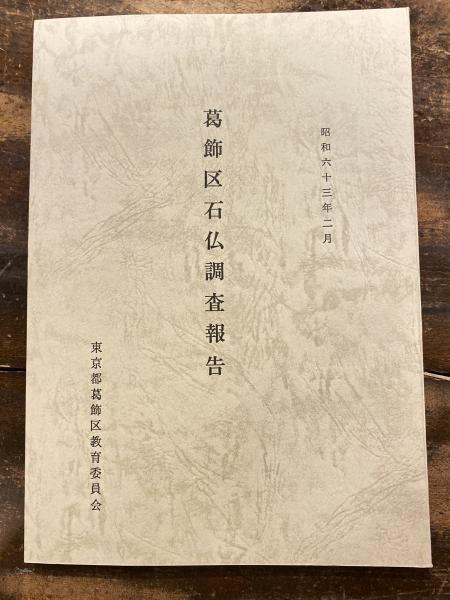 昭和六十三年二月
葛飾区石仏調査報告
東京都葛飾区教育委員会